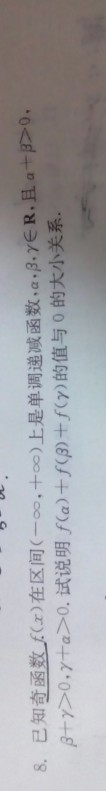 8. 已知奇函数 f(x)在区间(-∞,+∞)上是单调递减函数,α,β,γ∈R,且 α+β>0,
β+γ>0,γ+α>0.试说明 f(α)+f(β)+f(γ)的值与 0 的大小关系.